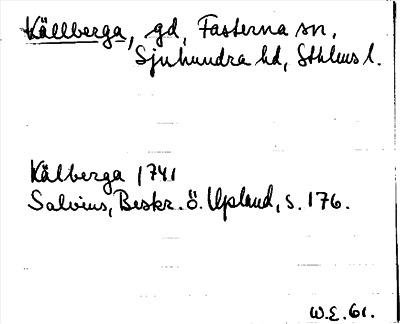 Källberga, gd, Fasterna sn,
Sjuhundra hd, Sthlms l.
Kälberga 1741
Salvius, Beskr. ö. Upland, s. 176.
W.E. 61.